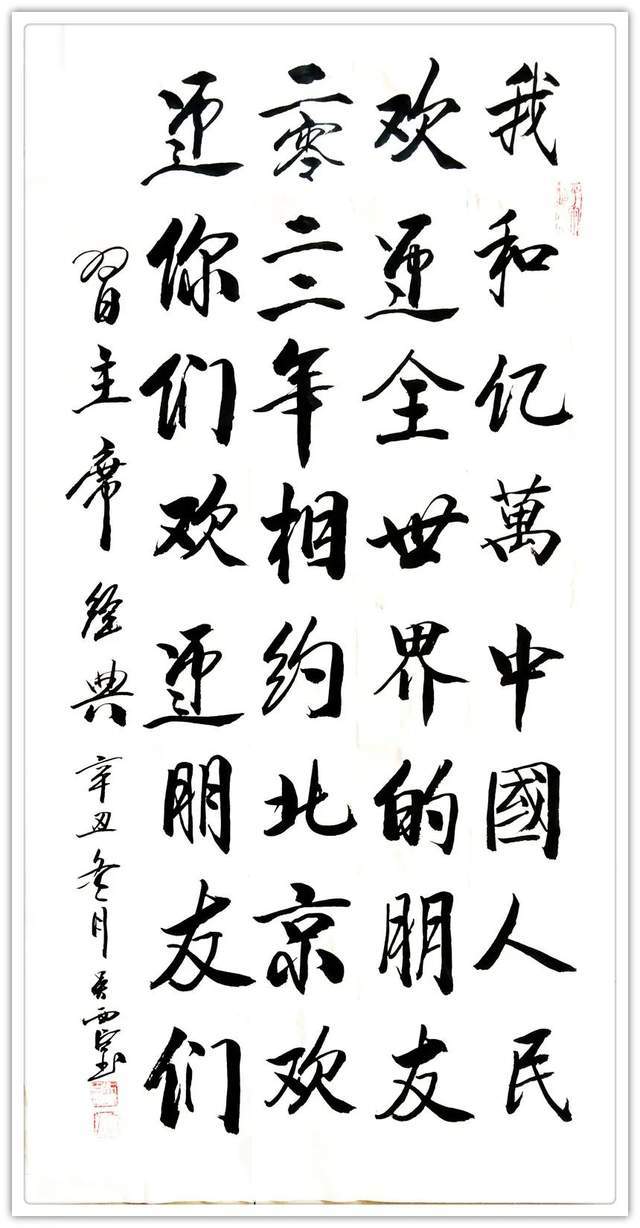 我和亿萬中國人民
欢迎全世界的朋友
二零二二年相约北京欢
迎你们欢迎朋友们
習主席經典辛丑冬月